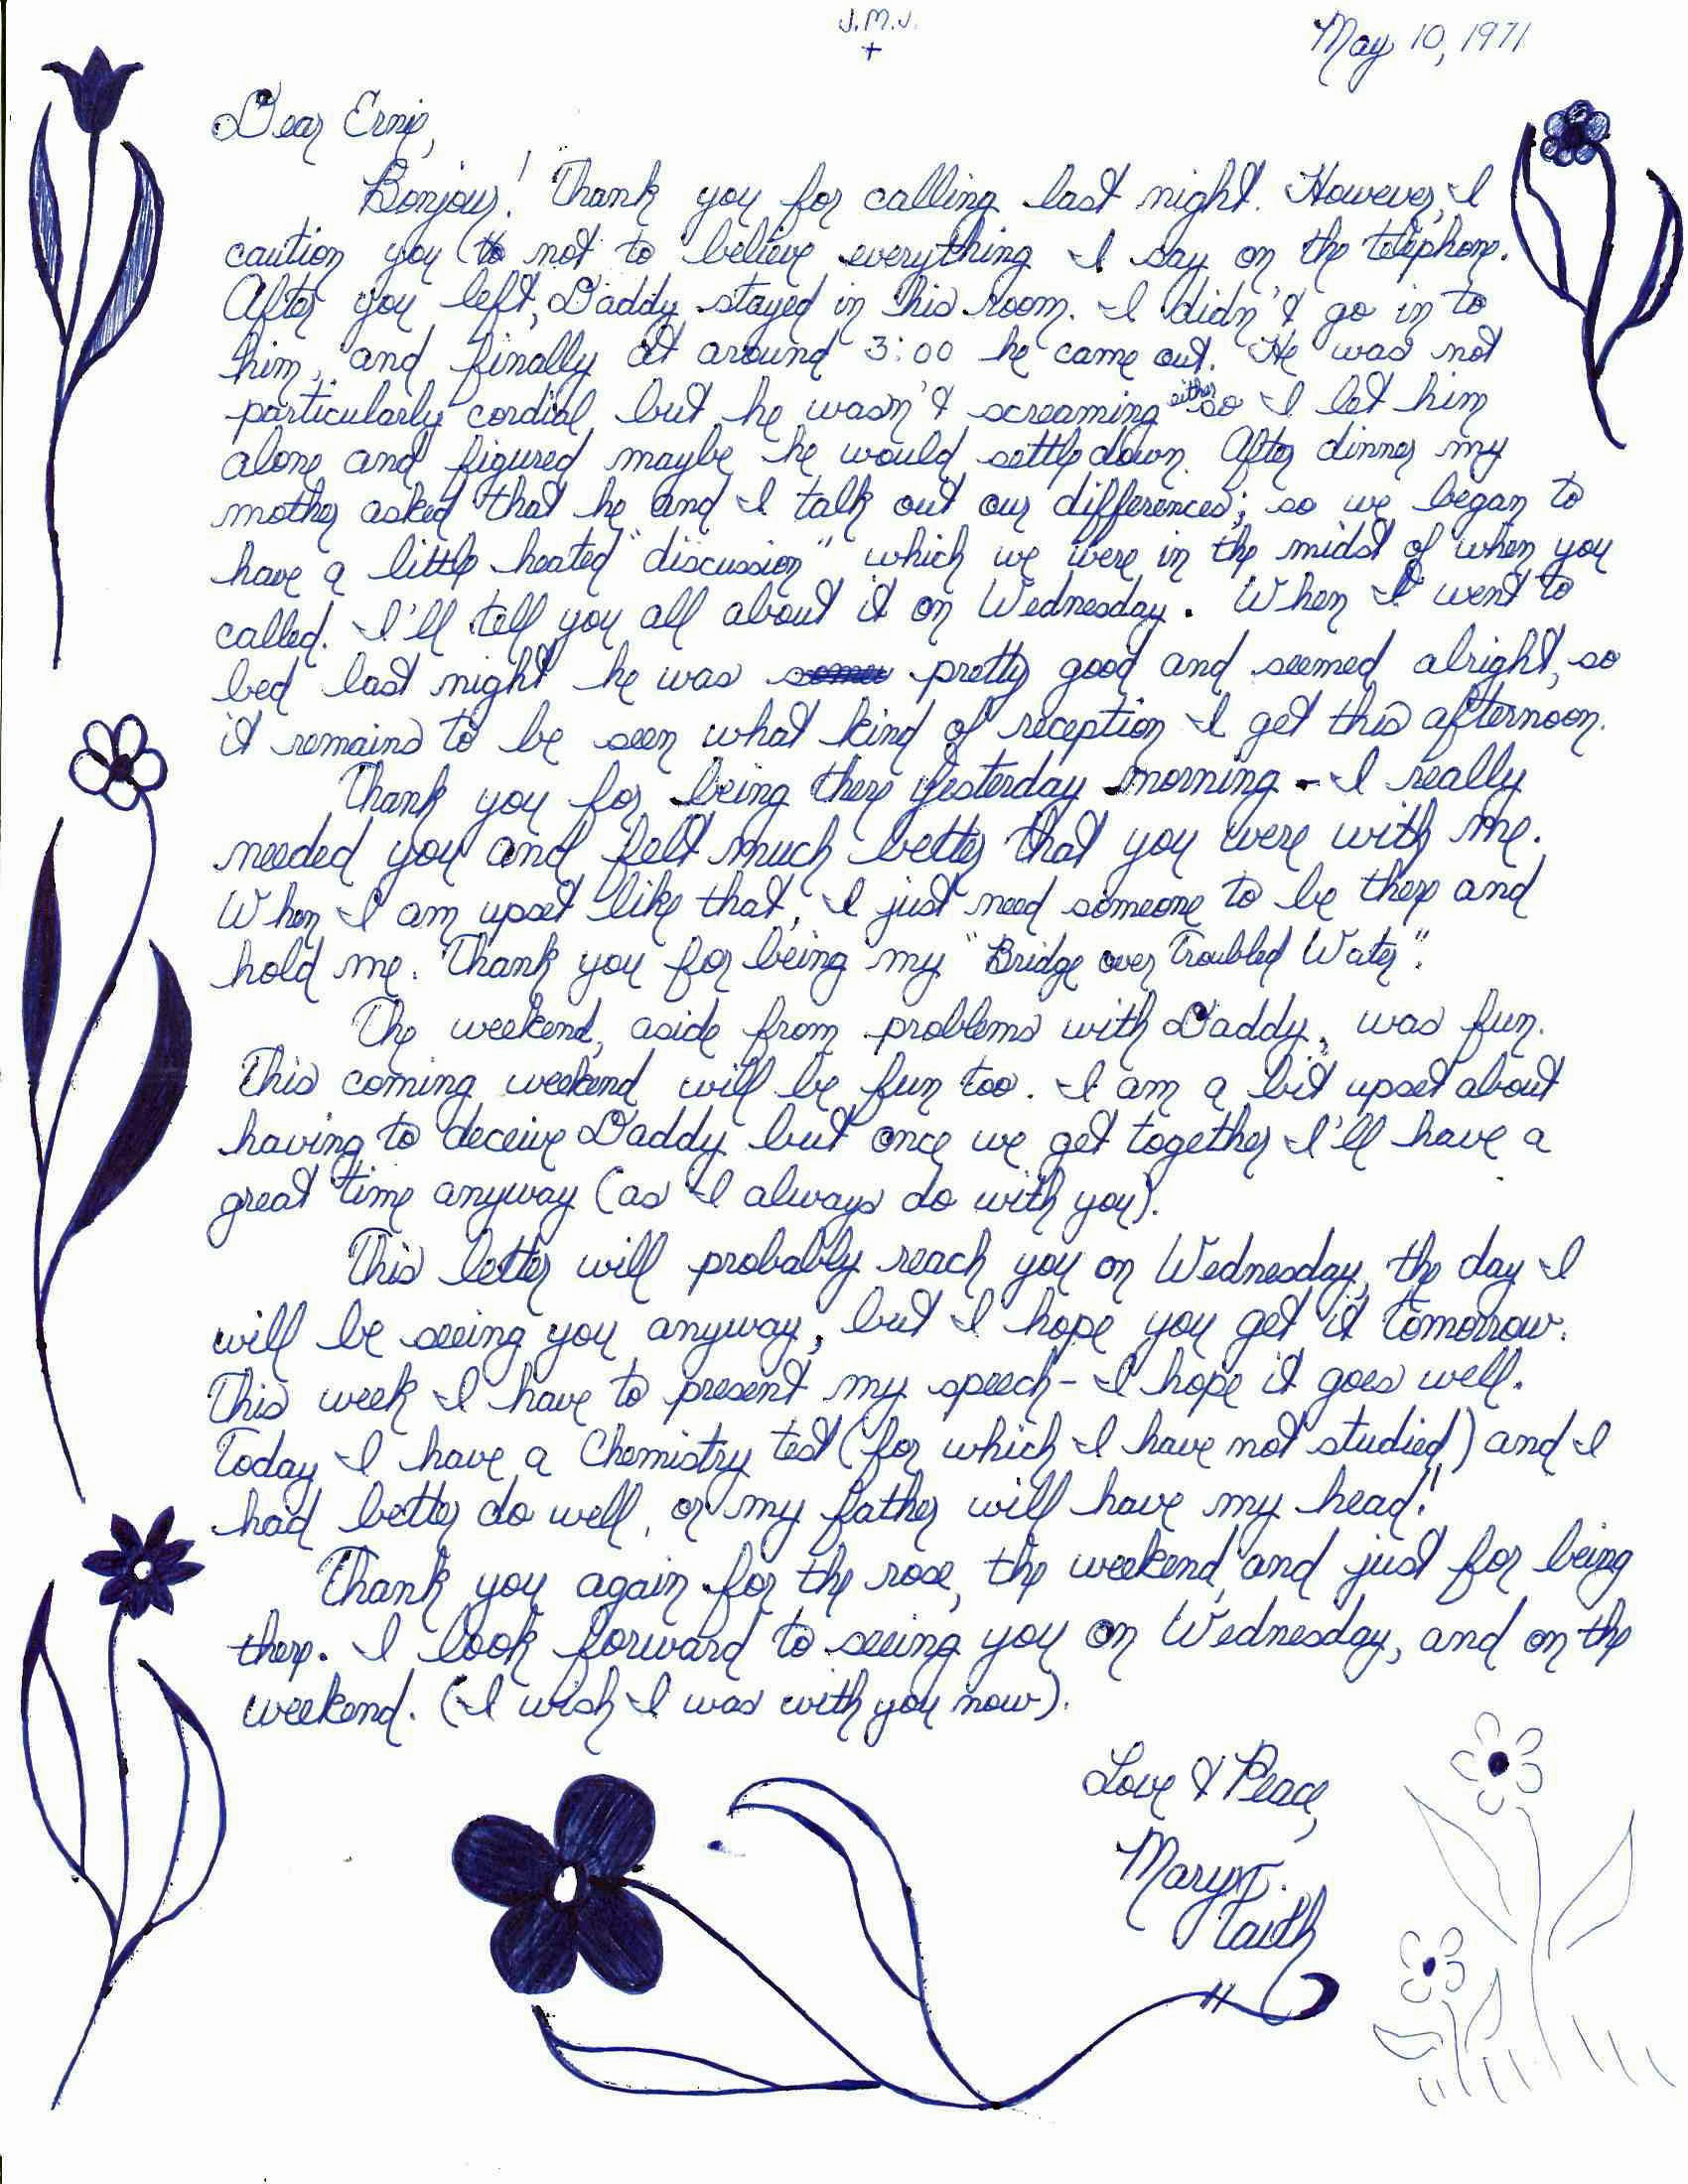 J.M.J.
+
May 10, 1971
Dear Ernie,
Bonjour! Thank you for calling last night. However, I
caution you to not to believe everything I say on the telephone.
After you left, Daddy stayed in his room. I didn't go in to
him, and finally at around 3:00 he came out. He was not
particularly cordial but he wasn't screaming either so I let him
alone and figured maybe he would settle down. After dinner my
mother asked that he and I talk out our differences; so we began to
have a little heated "discussion" which we were in the midst of when you
called. I'll tell you all about it on Wednesday. When I went to
bed last night he was pretty good and seemed alright, so
it remains to be seen what kind of reception I get this afternoon.
Thank you for being there yesterday morning - I really
needed you and felt much better that you were with me.
When I am upset like that, I just need someone to be there and
hold me. Thank you for being my "Bridge over Troubled Water".
The weekend, aside from problems with Daddy, was fun.
This coming weekend will be fun too. I am a bit upset about
having to deceive Daddy but once we get together I'll have a
great time anyway (as I always do with you).
This letter will probably reach you on Wednesday, the day I
will be seeing you anyway, but I hope you get it tomorrow.
This week I have to present my speech - I hope it goes well.
Today I have a Chemistry test (for which I have not studied) and I
had better do well, or my father will have my head!
Thank you again for the rose, the weekend, and just for being
there. I look forward to seeing you on Wednesday, and on the
weekend. (I wish I was with you now).
Love & Peace,
Mary
Faith